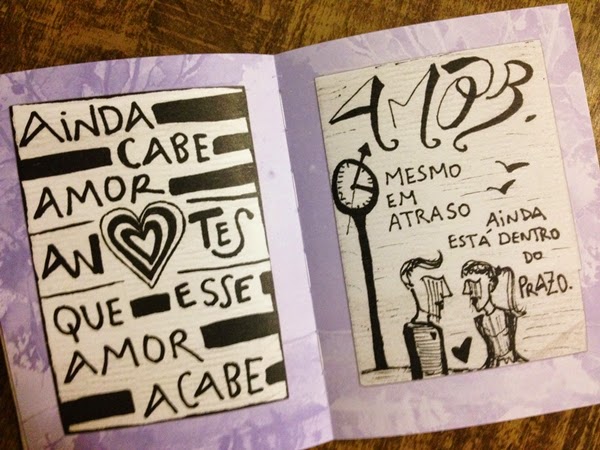 AINDA
CABE
AMOR
AN TES
QUE ESSE
AMOR
ACABE
AMOR.
MESMO
EM
ATRASO
AINDA
ESTÁ DENTRO
DO
PRAZO.